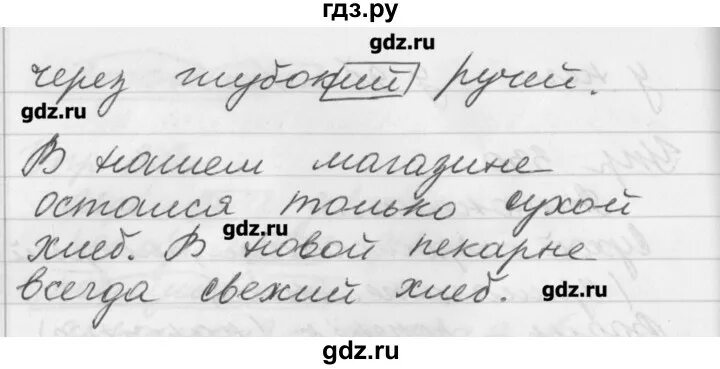 гдз.ру
gdz.ru
через глубокий ручей.
gdz.ru
В нашем магазине
остался только сухой
gdz.ru
хлеб. В новой пекарне
всегда свежий хлеб.
gdz.ru
gdz.ru